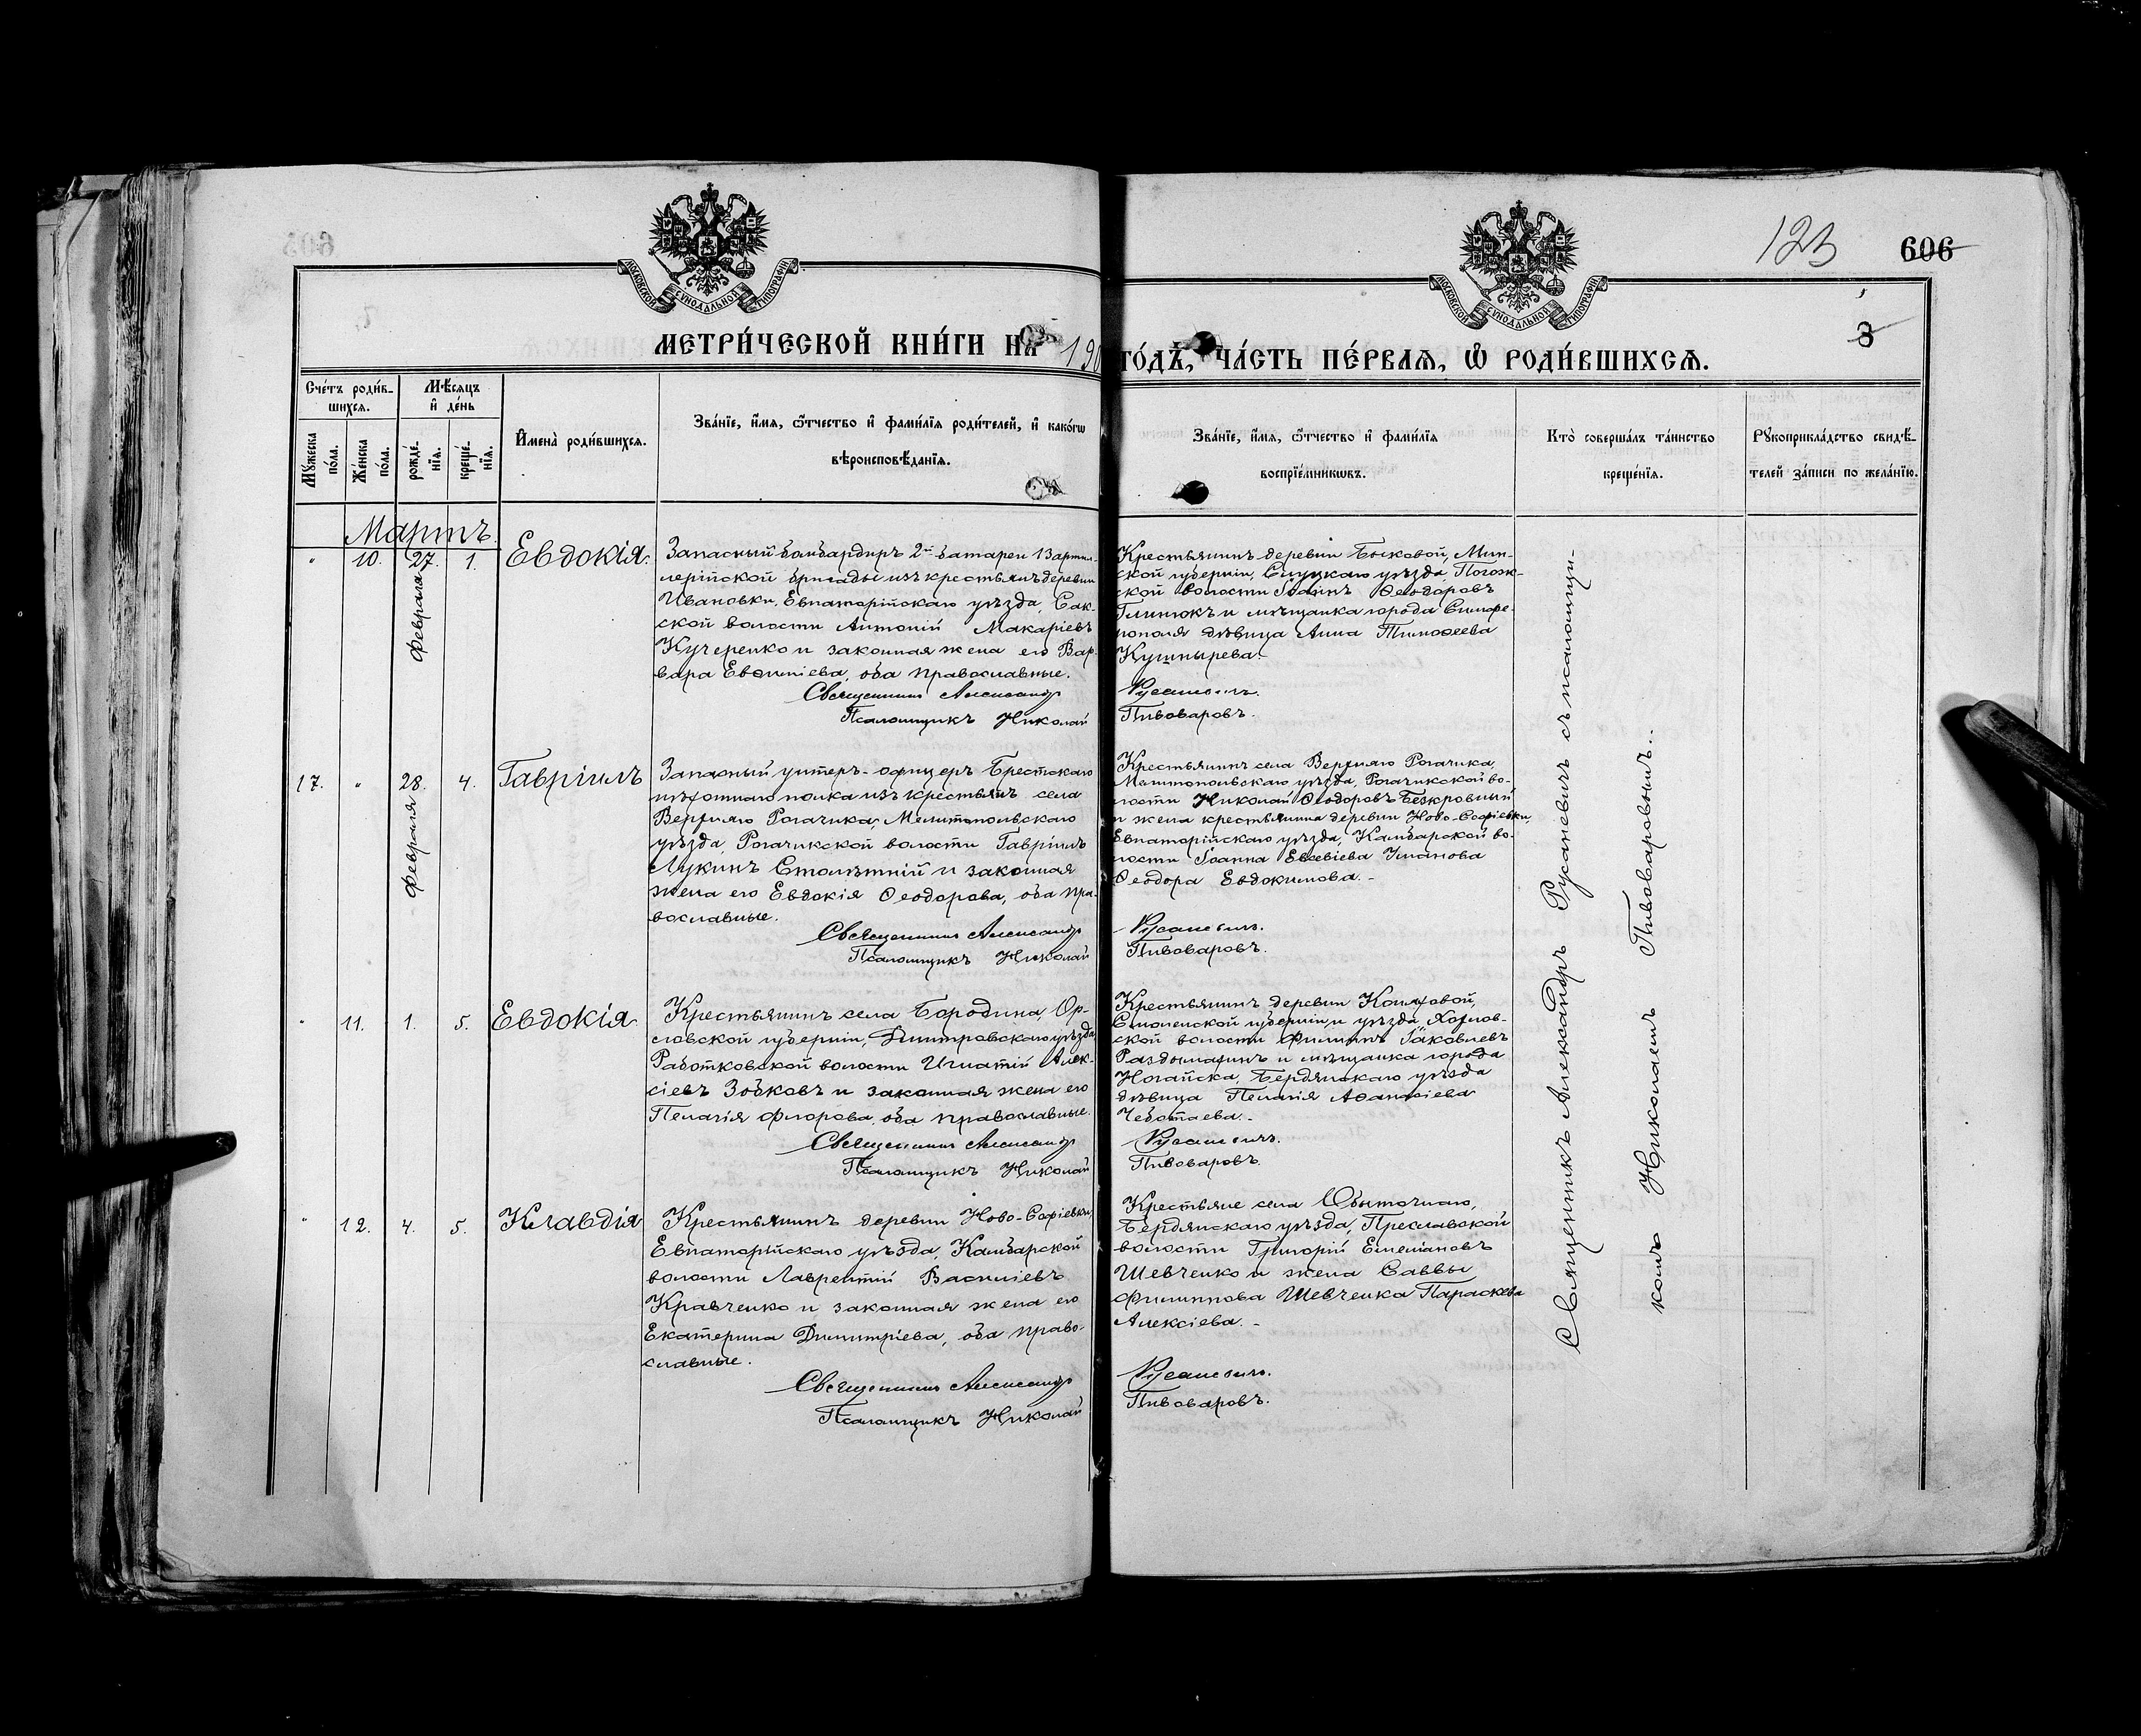 123
606
3
МОСКОВСКОЙ СѴНОДАЛЬНОЙ ТИПОГРАФІИ
МОСКОВСКОЙ СѴНОДАЛЬНОЙ ТИПОГРАФІИ
МЕТРИ́ЧЕСКОЙ КНИ́ГИ НА 190
ГО́ДЪ, ЧА́СТЬ ПЕ́РВАЯ, Ѡ РОДИ́ВШИХСЯ.
Сче́тъ роди́в-
шихся.
Мѣ́сяцъ
и҆ де́нь
Мꙋжеска по́ла.
Же́нска по́ла.
рожде́-
нїя.
креще́-
нїя.
И҆мена̀ роди́вшихся.
Зва́нїе, и҆́мя, ѻ҆́тчество и҆ фами́лїя роди́телей, и҆ како́гѡ
вѣроисповѣ́данїя.
Зва́нїе, и҆́мя, ѻ҆́тчество и҆ фами́лїя
воспрїе́мникѡвъ.
Кто̀ соверша́лъ та́инство
креще́нїя.
Рꙋкоприкла́дство свидѣ́-
телей за́писи по жела́нїю.
Мартъ
" 10. 27. 1. Евдокія.
Февраля
Запасный бомбардиръ 2й батареи 13 артил-
лерійской бригады изъ крестьянъ деревни
Ивановки, Евпаторійскаго уѣзда, Сак-
ской волости Антоній Макаріевъ
Кучеренко и законная жена его Вар-
вара Евѳиміева, оба православные.
Священникъ Александр
Псаломщикъ Николай
Крестьянинъ деревни Быковой, Мин-
ской губерніи, Слуцкаго уѣзда,
ской волости Іоаннъ Ѳеодоровъ
Глинюкъ и мѣщанка города Симфе-
рополя дѣвица Анна Тимоѳеева
Кушнырева.
Русаневичъ.
Пивоваровъ.
17. " 28. 4. Гавріилъ
Февраля
Запасный унтеръ-офицеръ Брестскаго
пѣхотнаго полка изъ крестьянъ села
Верхняго Рогачика, Мелитопольскаго
уѣзда, Рогачикской волости Гавріилъ
Лукинъ Столѣтній и законная
жена его Евдокія Ѳеодорова, оба пра-
вославные.
Священникъ Александр
Псаломщикъ Николай
Крестьянинъ села Верхняго Рогачика,
Мелитопольскаго уѣзда, Рогачикской во-
лости Николай Ѳеодоровъ Безкровный
и жена крестьянина деревни Ново-Софіевки,
Евпаторійскаго уѣзда, Камбарской во-
лости Іоанна Евсевіева Уманова
Ѳеодора Евдокимова.-
Русаневичъ.
Пивоваровъ.
" 11. 1. 5. Евдокія
Крестьянинъ села Бородина, Ор-
ловской губерніи, Дмитровскаго уѣзда,
Работковской волости Игнатій Алек-
сіевъ Зобковъ и законная жена его
Пелагія Флорова, оба православные.
Священникъ Александр
Псаломщикъ Николай
Крестьянинъ деревни
Смоленской губерніи и уѣзда, Хохлов-
ской волости Филиппъ Іаковлевъ
и мѣщанка города
Ногайска, Бердянскаго уѣзда
дѣвица Пелагія Аѳанасіева
Чеботаева.-
Русаневичъ.
Пивоваровъ.
" 12. 4. 5. Клавдія
Крестьянинъ деревни Ново-Софіевки,
Евпаторійскаго уѣзда, Камбарской
волости Лаврентій Василіевъ
Кравченко и законная жена его
Екатерина Димитріева, оба право-
славные.
Священникъ Александр
Псаломщикъ Николай
Крестьяне села Обыточнаго,
Бердянскаго уѣзда, Преславской
волости Григорій Емеліановъ
Шевченко и жена Саввы
Филиппова Шевченка Параскева
Алексіева.-
Русаневичъ.
Пивоваровъ.
Священникъ Александръ Русаневичъ съ псаломщи-
комъ Николаемъ Пивоваровымъ.